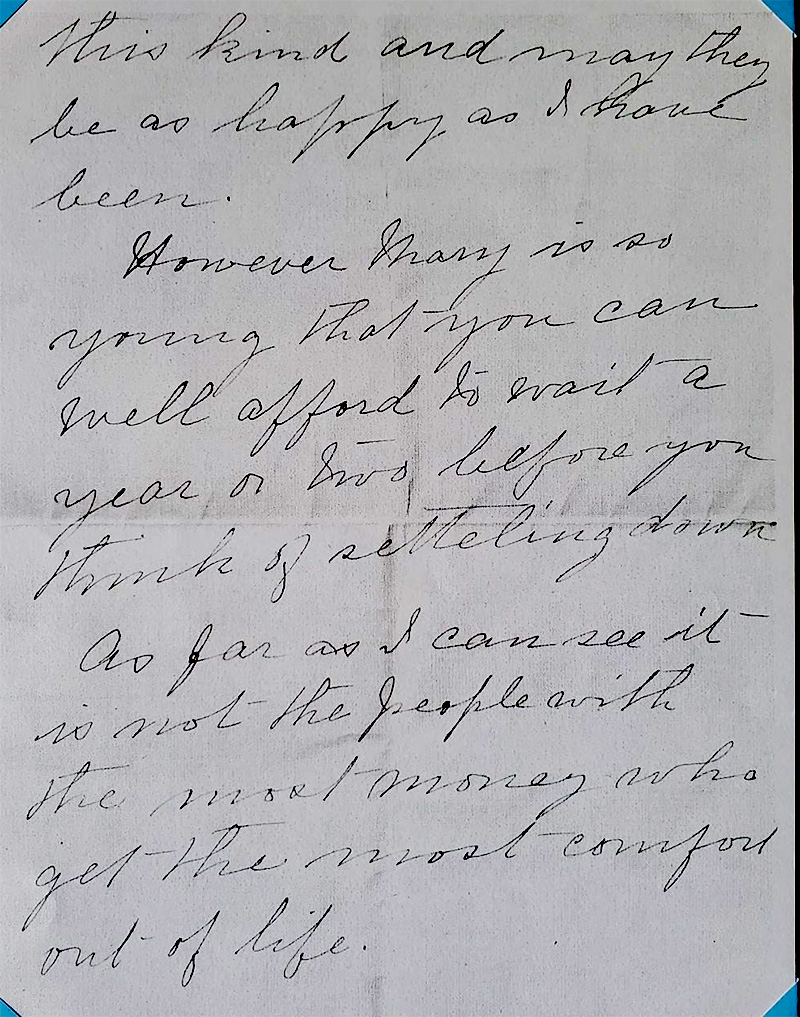 this kind and may they
be as happy as I have
been.
However Mary is so
young that you can
well afford to wait a
year or two before you
think of setteling down
As far as I can see it
is not the people with
the most money who
get the most comfort
out of life.